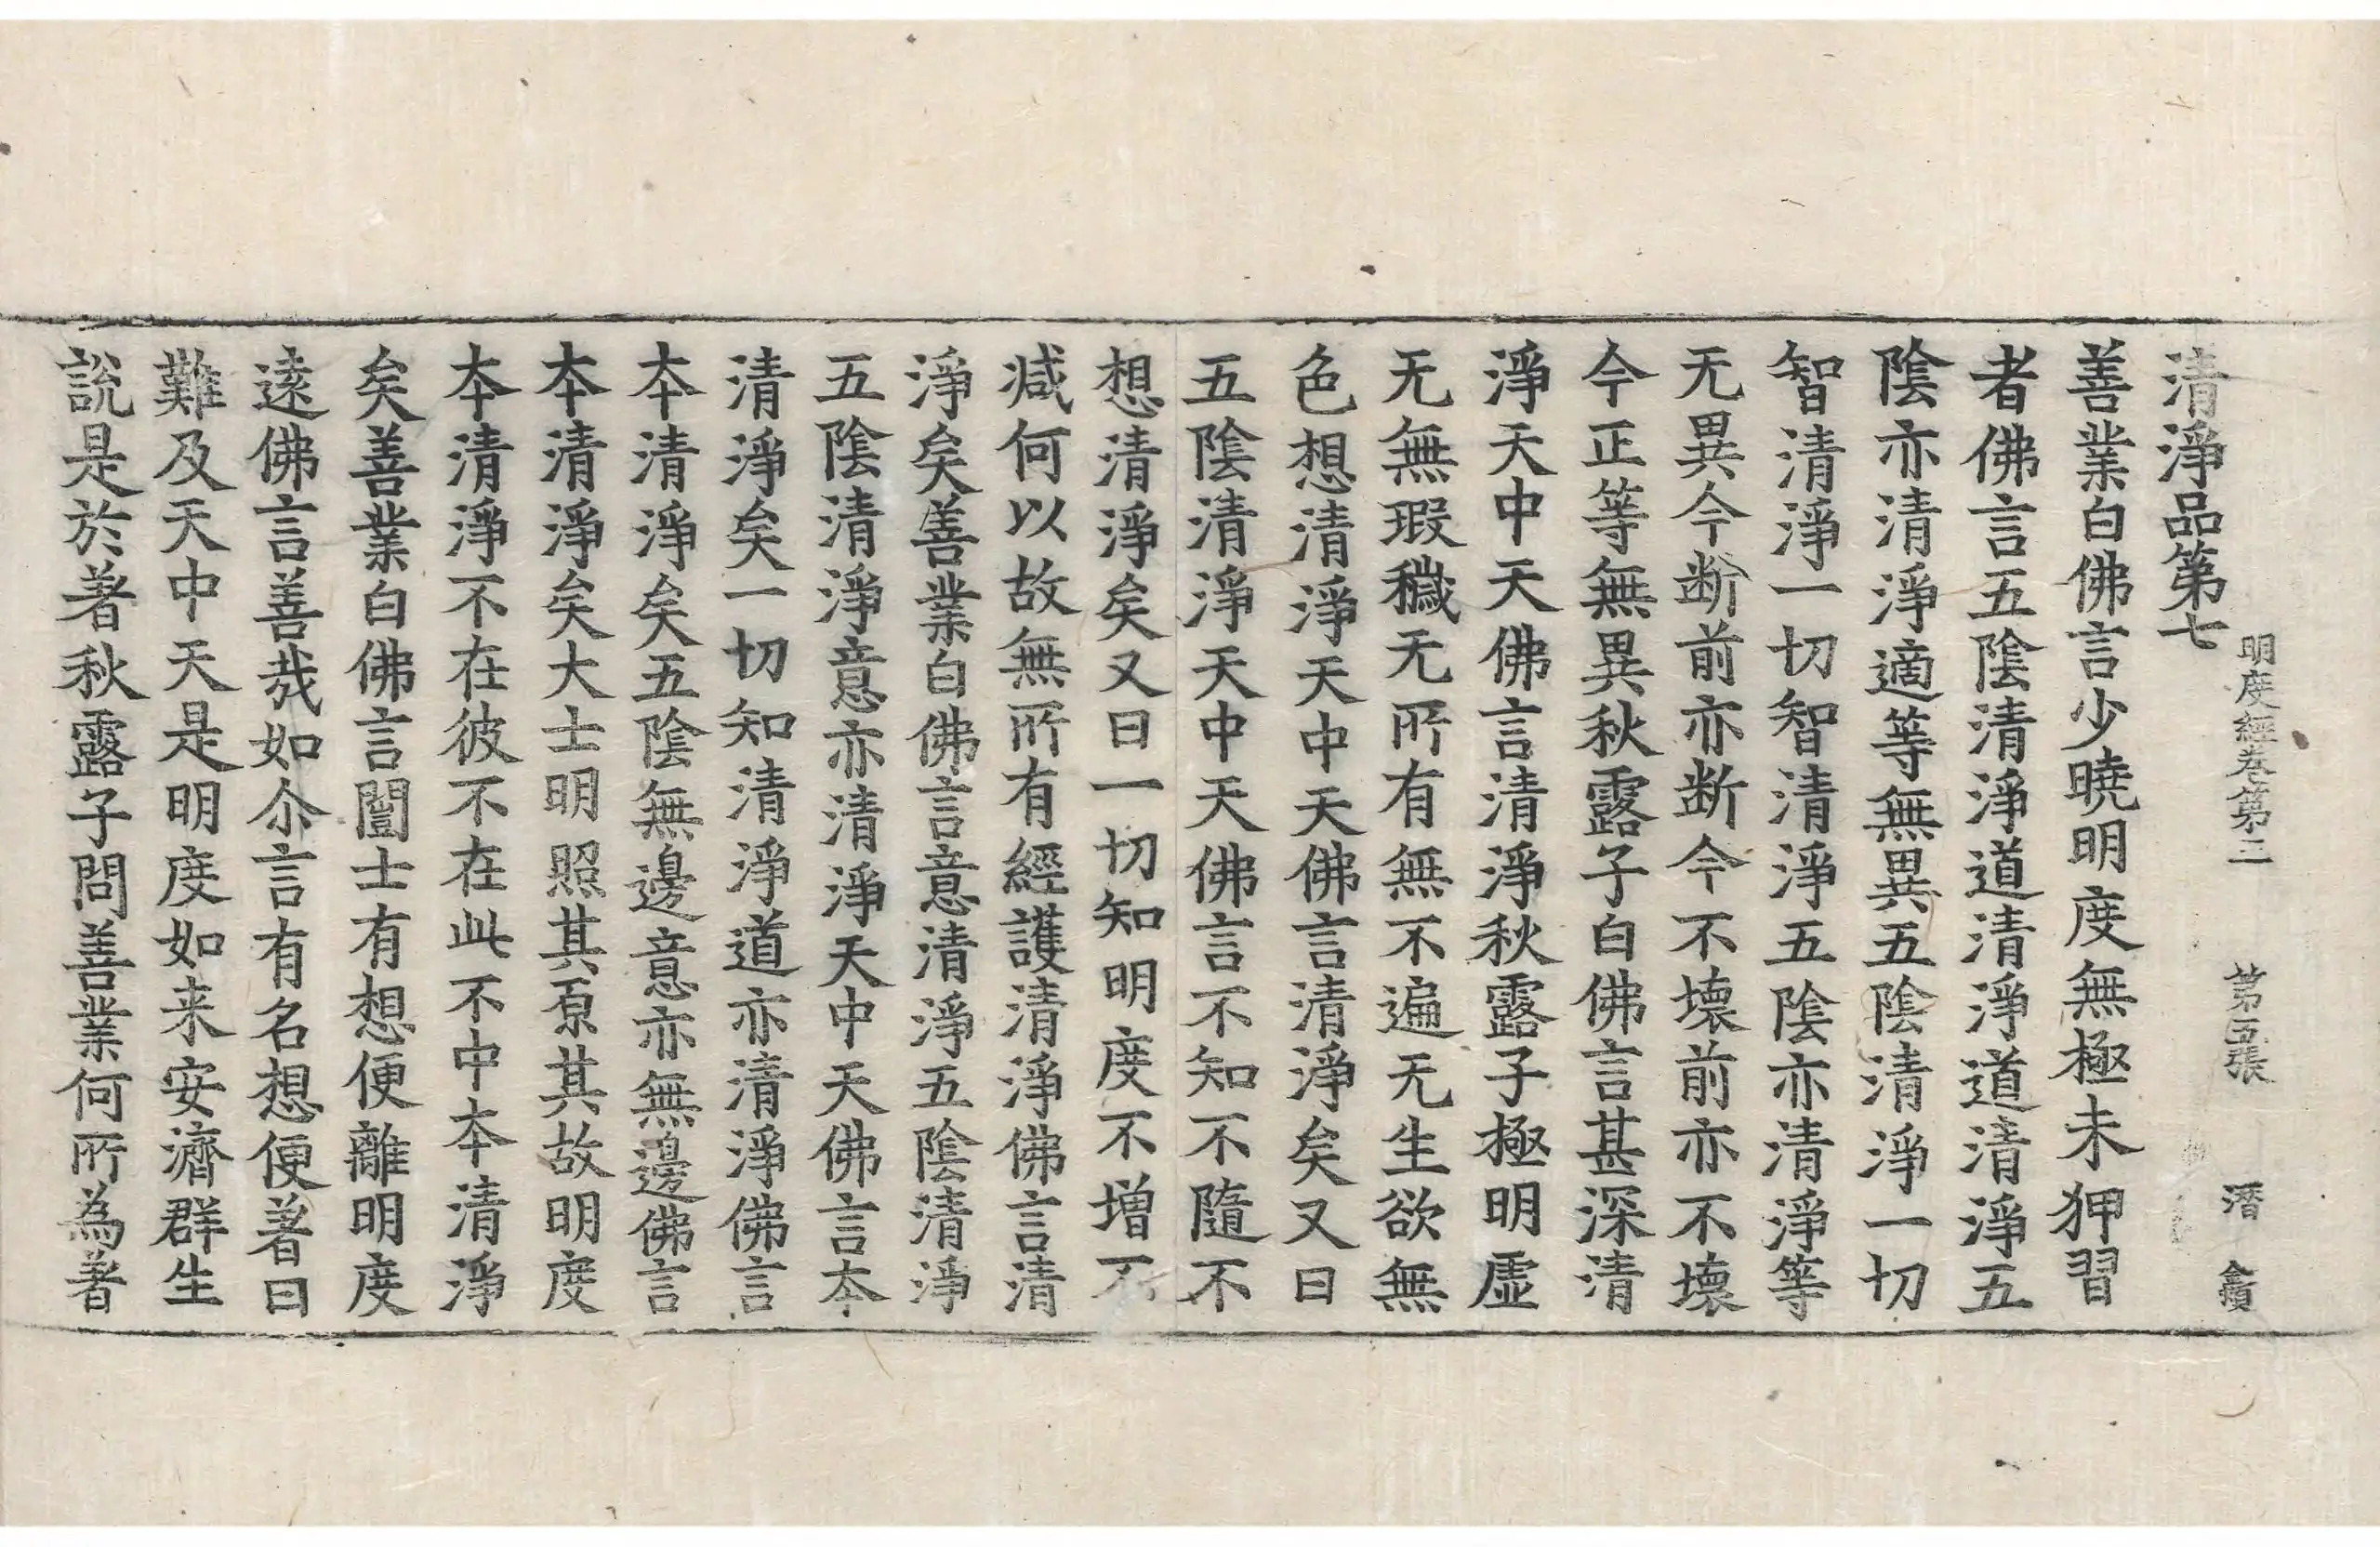 明度經卷第三 第五張 潛
清淨品第七
善業白佛言少曉明度無極未狎習
者佛言五陰清淨道清淨道清淨五
陰亦清淨適等無異五陰清淨一切
智清淨一切智清淨五陰亦清淨等
无異今断前亦断今不壞前亦不壞
今正等無異秋露子白佛言甚深清
淨天中天佛言清淨秋露子極明虛
无無瑕穢无所有無不遍无生欲無
色想清淨天中天佛言清淨矣又曰
五陰清淨天中天佛言不知不隨不
想清淨矣又曰一切知明度不增不
减何以故無所有經護清淨佛言清
淨矣善業白佛言意清淨五陰清淨
五陰清淨意亦清淨天中天佛言夲
清淨矣一切知清淨道亦清淨佛言
夲清淨矣五陰無邊意亦無邊佛言
夲清淨矣大士明照其原其故明度
夲清淨不在彼不在此不中夲清淨
矣善業白佛言闓士有想便離明度
遠佛言善哉如尒言有名想便著曰
難及天中天是明度如来安濟群生
說是於著秋露子問善業何所為著